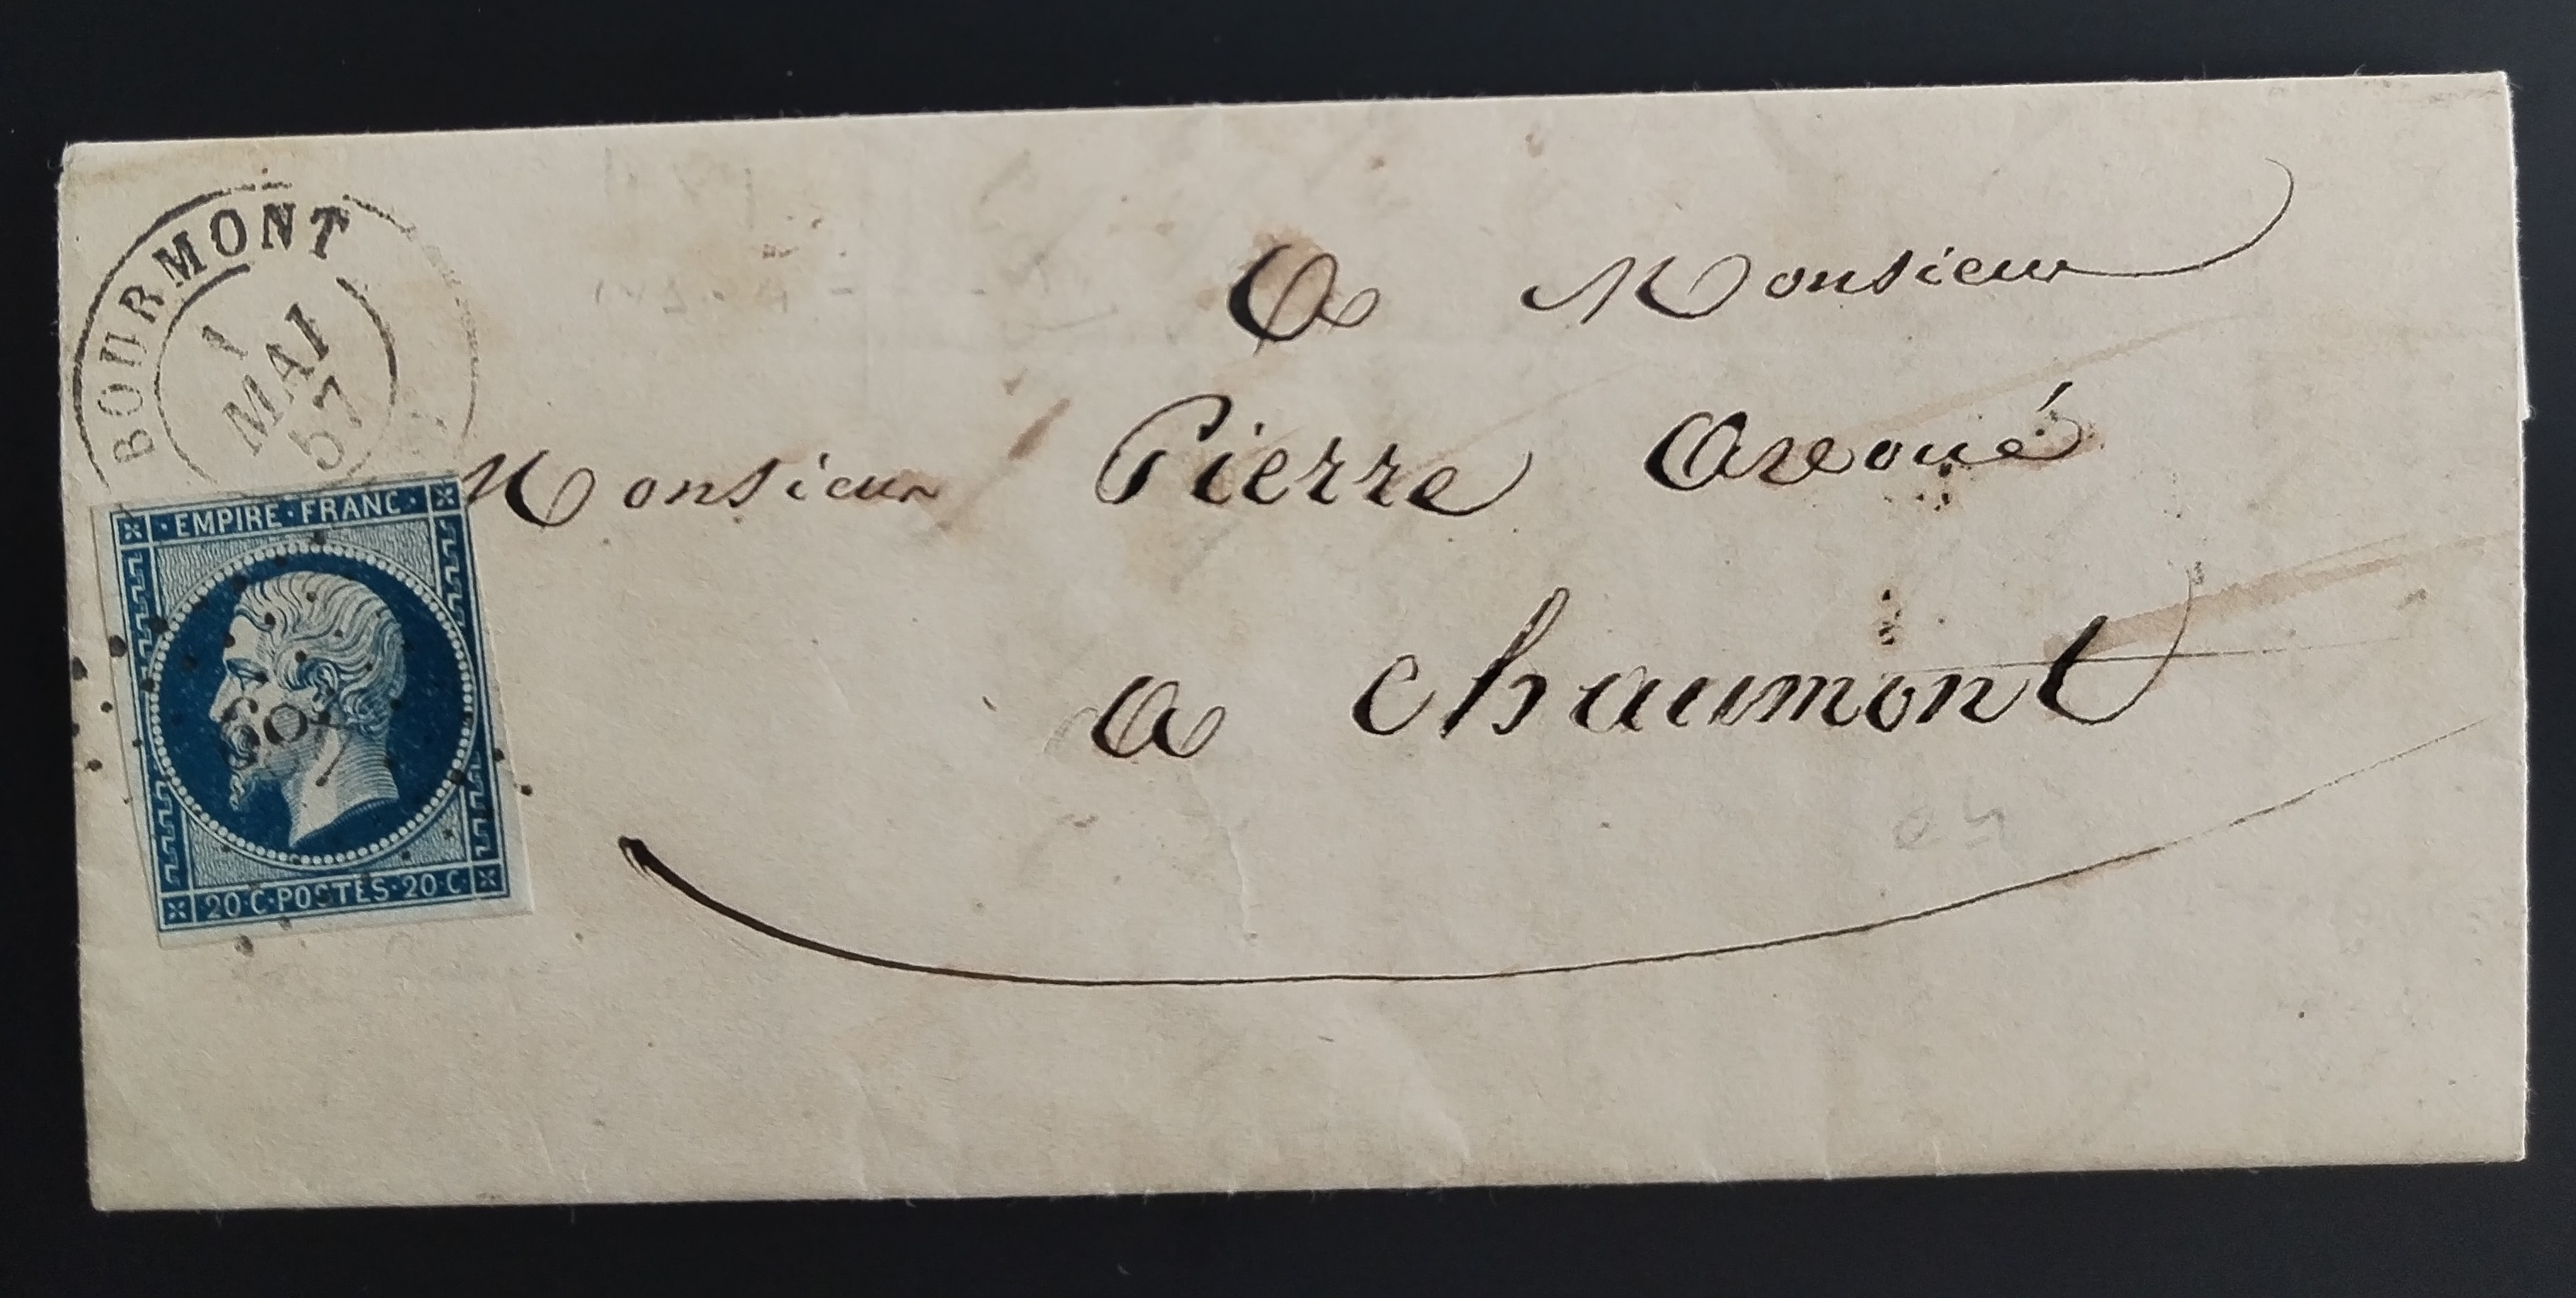 BOURMONT
1
MAI
57
A Monsieur
Monsieur Pierre Avoué
a chaumont
EMPIRE · FRANC ·
20 · C · POSTES · 20 · C ·